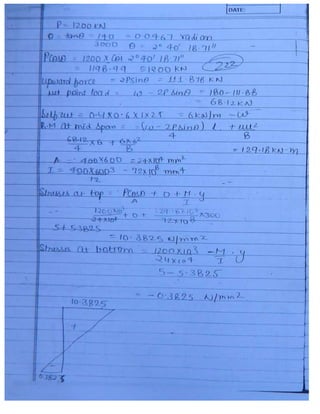 DATE:
P = 1200 KN
θ = tanθ = 140 = 0.0467 radian
3000 θ = 2° 40' 18.71"
Pcosθ = 1200 X cos 2° 40' 18.71"
= 1198.44 ≈1200 KN
222
Upward force = 2Psinθ = 111.878 KN
Net point load = ω - 2Psinθ = 180-111.88
= 68.12KN
Self wt = 0.4 X 0.6 X 1 X 25 = 6KN/m = ω'
B.M at mid span = (ω - 2Psinθ) l + ωl²
4 8
68.12 X6 + 6X6² = 129.18 KN.m
4 8
A = 400X600 = 24X10⁴ mm²
I = 400X600³ = 72X10⁸ mm⁴
12
Stresses at top = Pcosθ + 0 + M . y
A I
= 1200X10³ + 0 + X300
24X10⁴ 72X10⁸
5+5.3825
= 10.3825 N/mm²
Stresses at bottom = 1200X10³ - M . y
24X10⁴ I
5-5.3825
= -0.3825 N/mm²
10.3825
+
-
0.3825